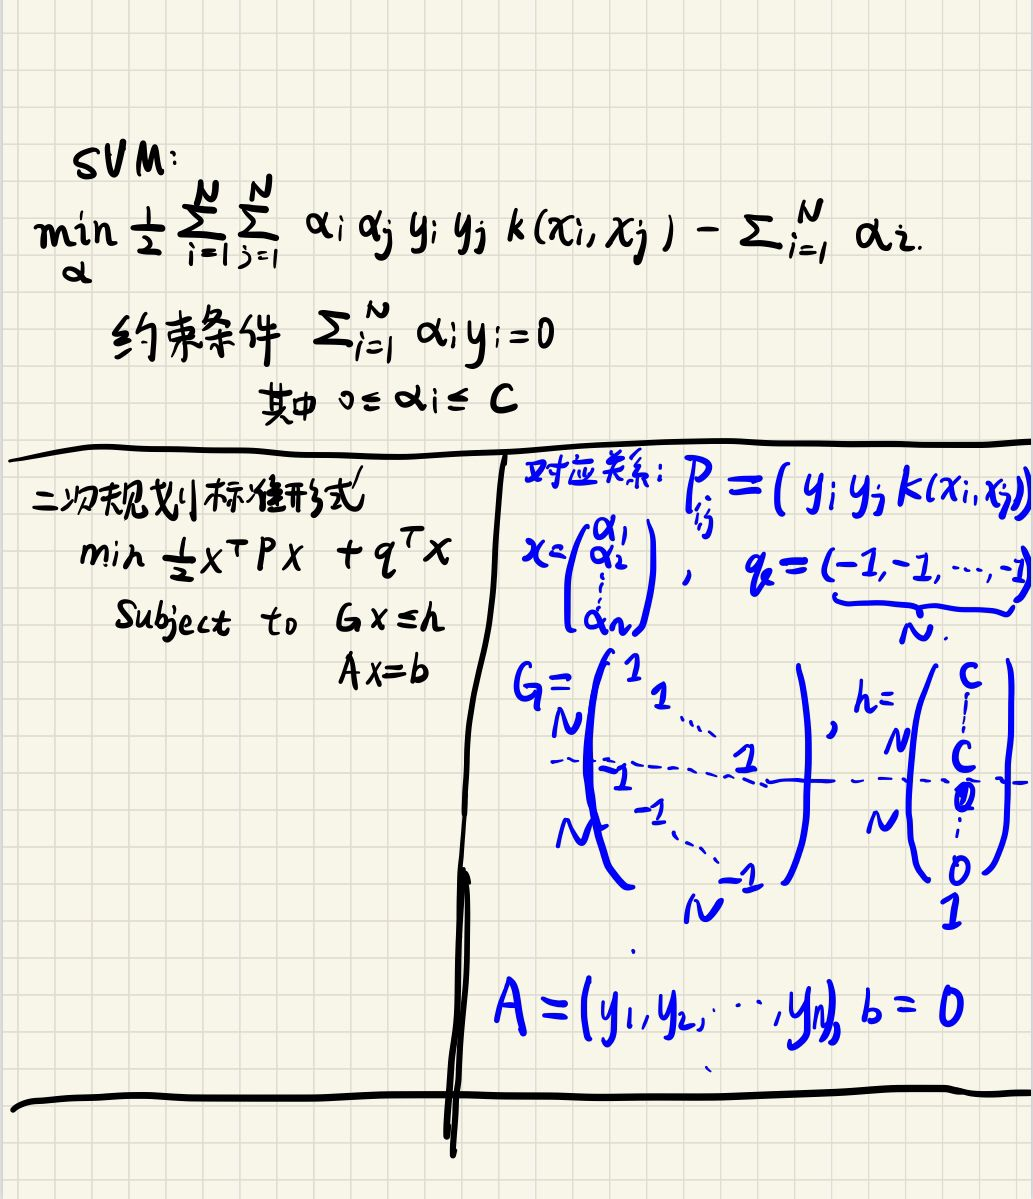 SVM:
min α 1/2 Σ_{i=1}^N Σ_{j=1}^N α_i α_j y_i y_j k(x_i, x_j) - Σ_{i=1}^N α_i.
约束条件 Σ_{i=1}^N α_i y_i = 0
其中 0 ≤ α_i ≤ C
二次规划标准形式
min 1/2 x^T P x + q^T x
Subject to Gx ≤ h
Ax = b
对应关系: P_{i,j} = ( y_i y_j k(x_i, x_j))
x = (α_1 α_2 ⋮ α_N), q = (-1, -1, ..., -1)
N.
G = N N (1 1 ⋱ 1 -1 -1 ⋱ -1), h = N N (C ⋮ C 0 ⋮ 0)
N 1
A = (y_1, y_2, ..., y_N), b = 0